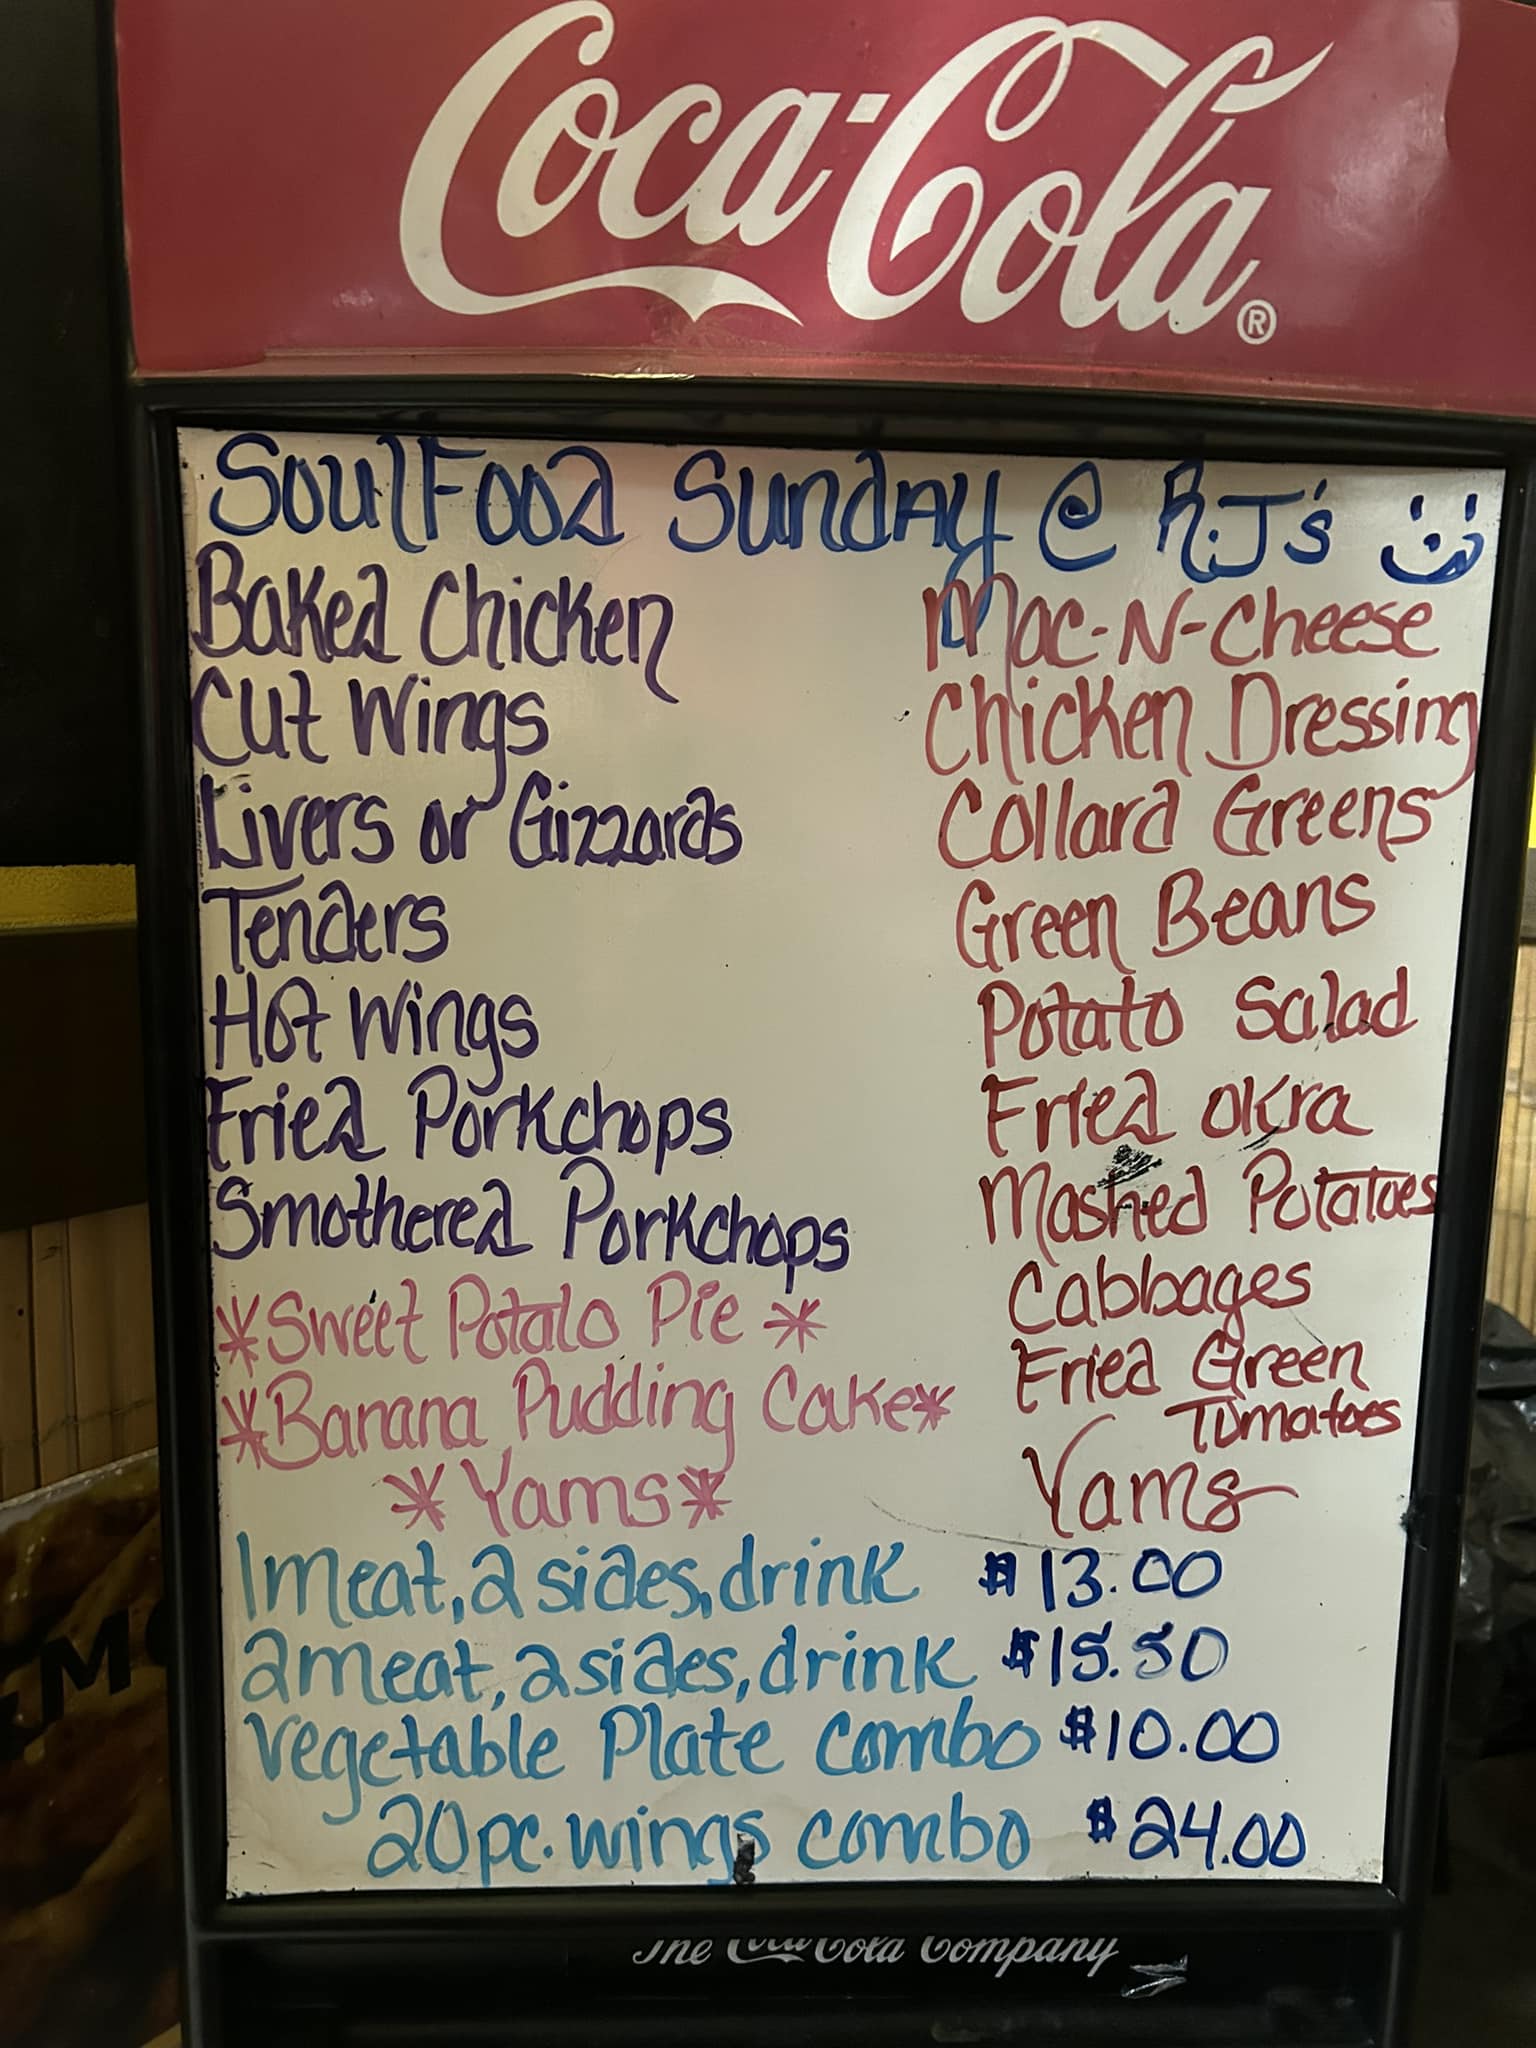 Coca-Cola®
SoulFood Sunday @ R.J's
Baked Chicken
Cut Wings
Livers or Gizzards
Tenders
Hot Wings
Fried Porkchops
Smothered Porkchops
*Sweet Potato Pie*
*Banana Pudding Cake*
*Yams*
Mac-N-Cheese
Chicken Dressing
Collard Greens
Green Beans
Potato Salad
Fried Okra
Mashed Potatoes
Cabbages
Fried Green
Tomatoes
Yams
1 meat, 2 sides, drink $13.00
2 meat, 2 sides, drink $15.50
Vegetable Plate combo $10.00
20pc. wings combo $24.00
The Coca-Cola Company